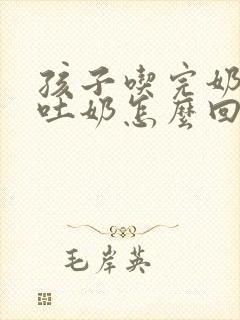 孩子喫完奶
吐奶怎麼回
毛岸英